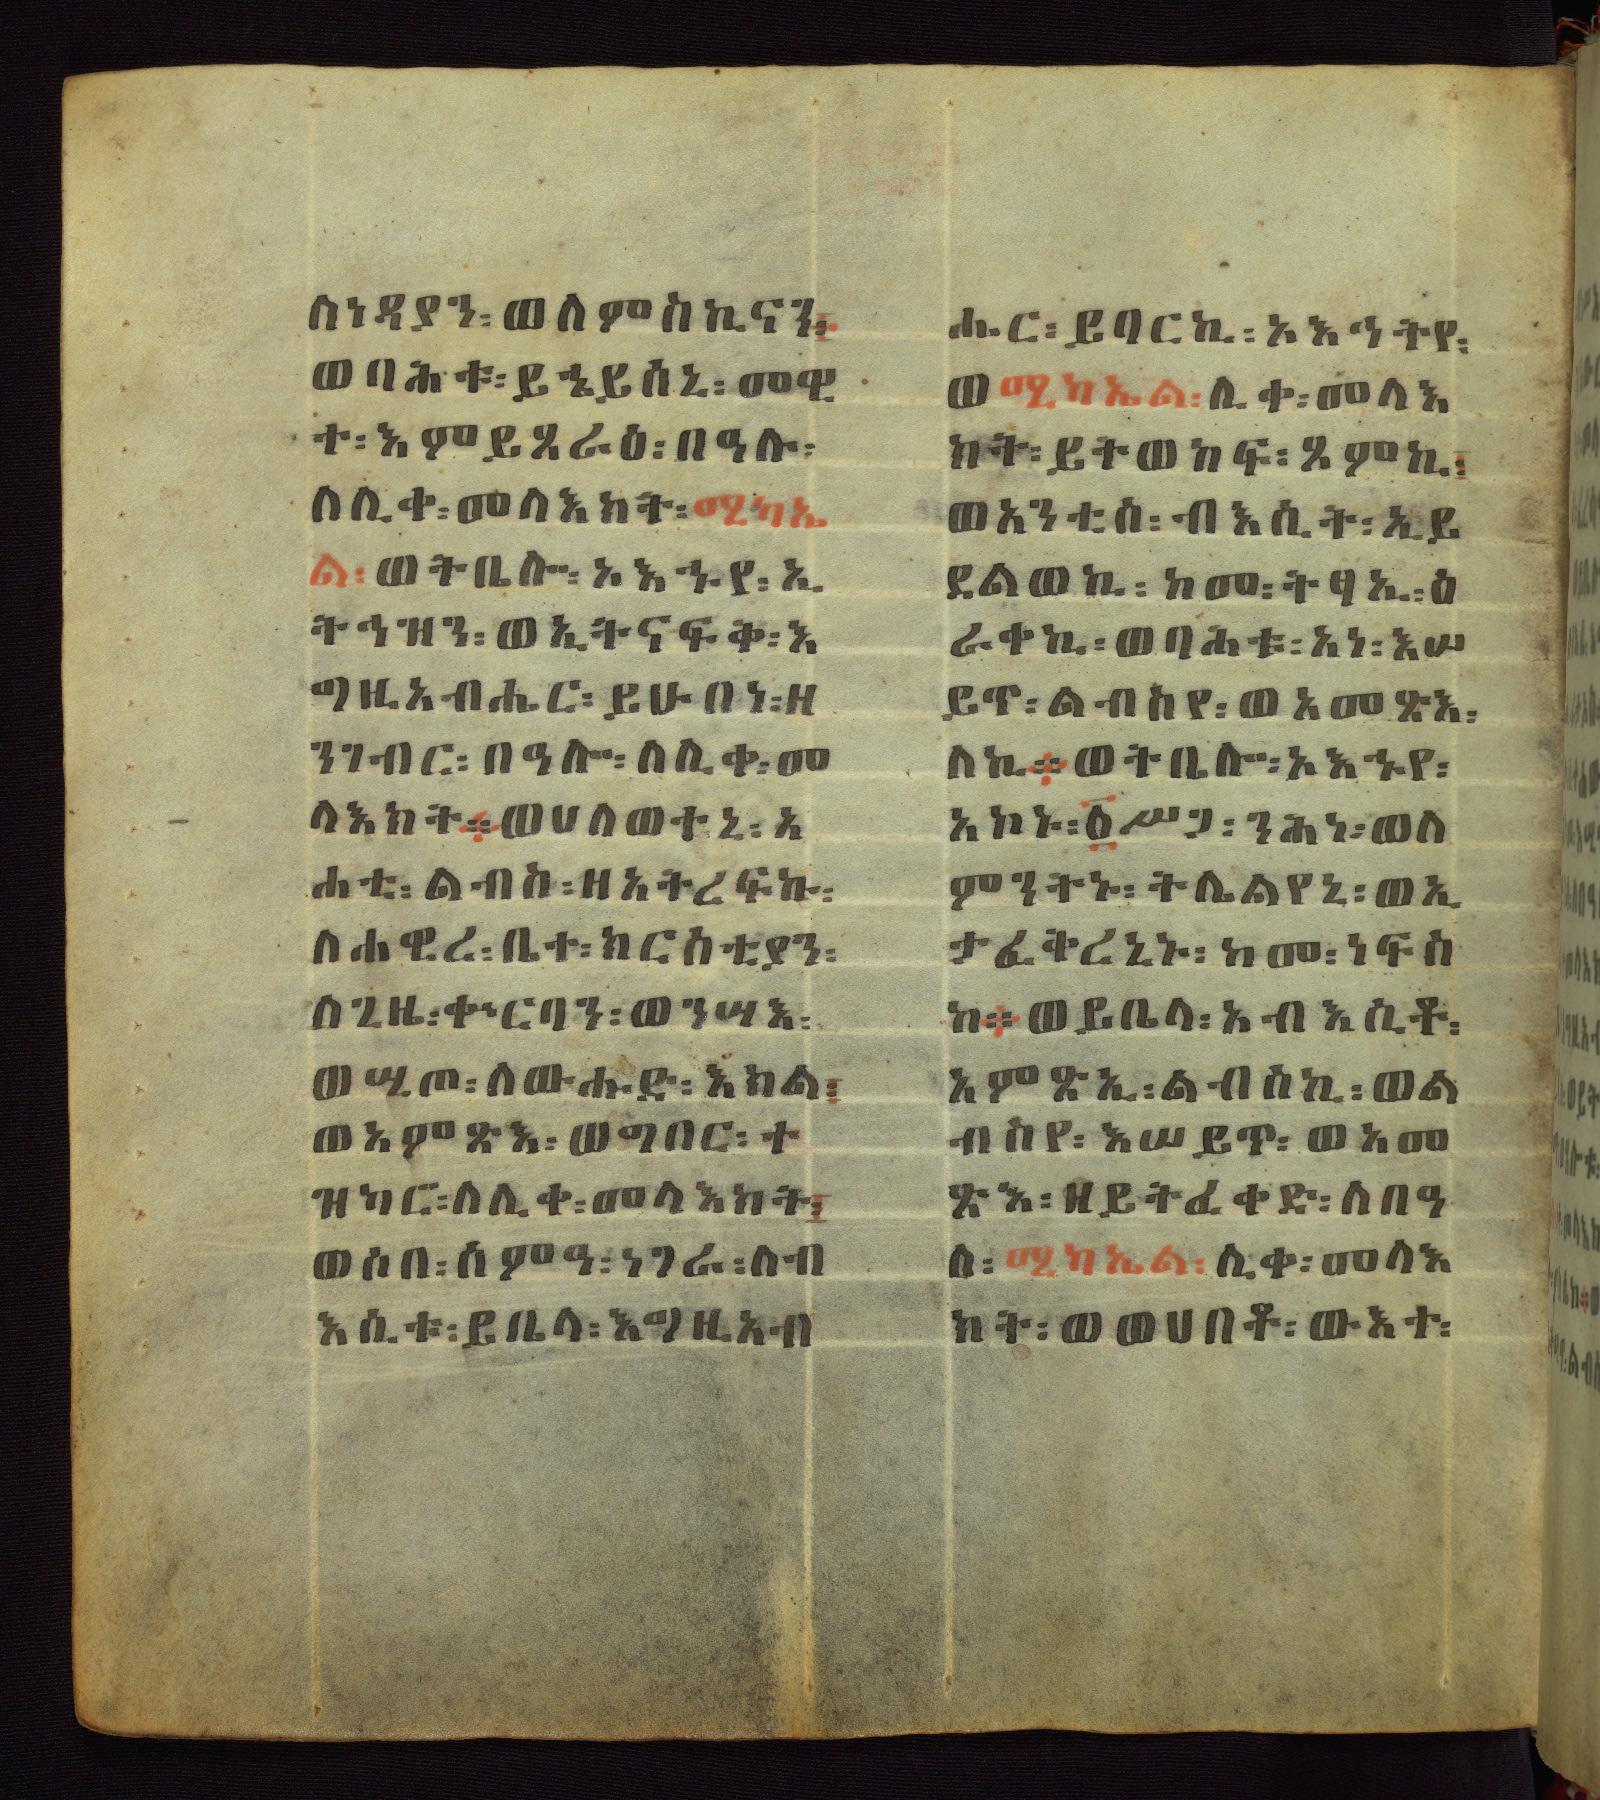 ለነዳያን፡ ወለምስኪናን፡
ወባሕቱ፡ ይኄይሰኒ፡ መዊ
ት፡ እምይጻራዕ፡ በዓሉ፡
ለሊቀ፡ መላእክት፡ ሚካኤ
ል፡ ወትቤሎ፡ አእኁየ፡ ኢ
ትኅዝን፡ ወኢትናፍቅ፡ እ
ግዚአብሔር፡ ይሁበነ፡ ዘ
ንገብር፡ በዓሎ፡ ለሊቀ፡ መ
ላእክት። ወሀለወተኒ፡ አ
ሐቲ፡ ልብስ፡ ዘአትረፍኩ፡
ለሐዊረ፡ ቤተ፡ ክርስቲያን፡
ለጊዜ፡ ቀኍርባን፡ ወንሣእ፡
ወሢጦ፡ ለውሑድ፡ እክል፡
ወአምጽእ፡ ወግበር፡ ተ
ዝካር፡ ለሊቀ፡ መላእክት፡
ወሶበ፡ ሰምዓ፡ ነገራ፡ ለብ
እሲቱ፡ ይቤላ፡ እግዚአብ
ሔር፡ ይባርኪ፡ አእኅትየ፡
ወሚካኤል፡ ሊቀ፡ መላእ
ክት፡ ይተወከፍ፡ ጻምኪ፡
ወአንቲሰ፡ ብእሲት፡ ኢይ
ደልወኪ፡ ከመ፡ ትፃኢ፡ ዕ
ራቀኪ፡ ወባሕቱ፡ አነ፡ እሠ
ይጥ፡ ልብስየ፡ ወአመጽእ፡
ለኪ። ወትቤሎ፡ አእኁየ፡
አኮኑ፡ ፩ሥጋ፡ ንሕነ፡ ወለ
ምንትኑ፡ ትሌልየኒ፡ ወኢ
ታፈቅረኒኑ፡ ከመ፡ ነፍስ
ከ። ወይቤላ፡ አብእሲቶ፡
አምጽኢ፡ ልብስኪ፡ ወል
ብስየ፡ እሠይጥ፡ ወአመ
ጽእ፡ ዘይትፈቀድ፡ ለበዓ
ለ፡ ሚካኤል፡ ሊቀ፡ መላእ
ክት፡ ወወሀበቶ፡ ውእተ፡